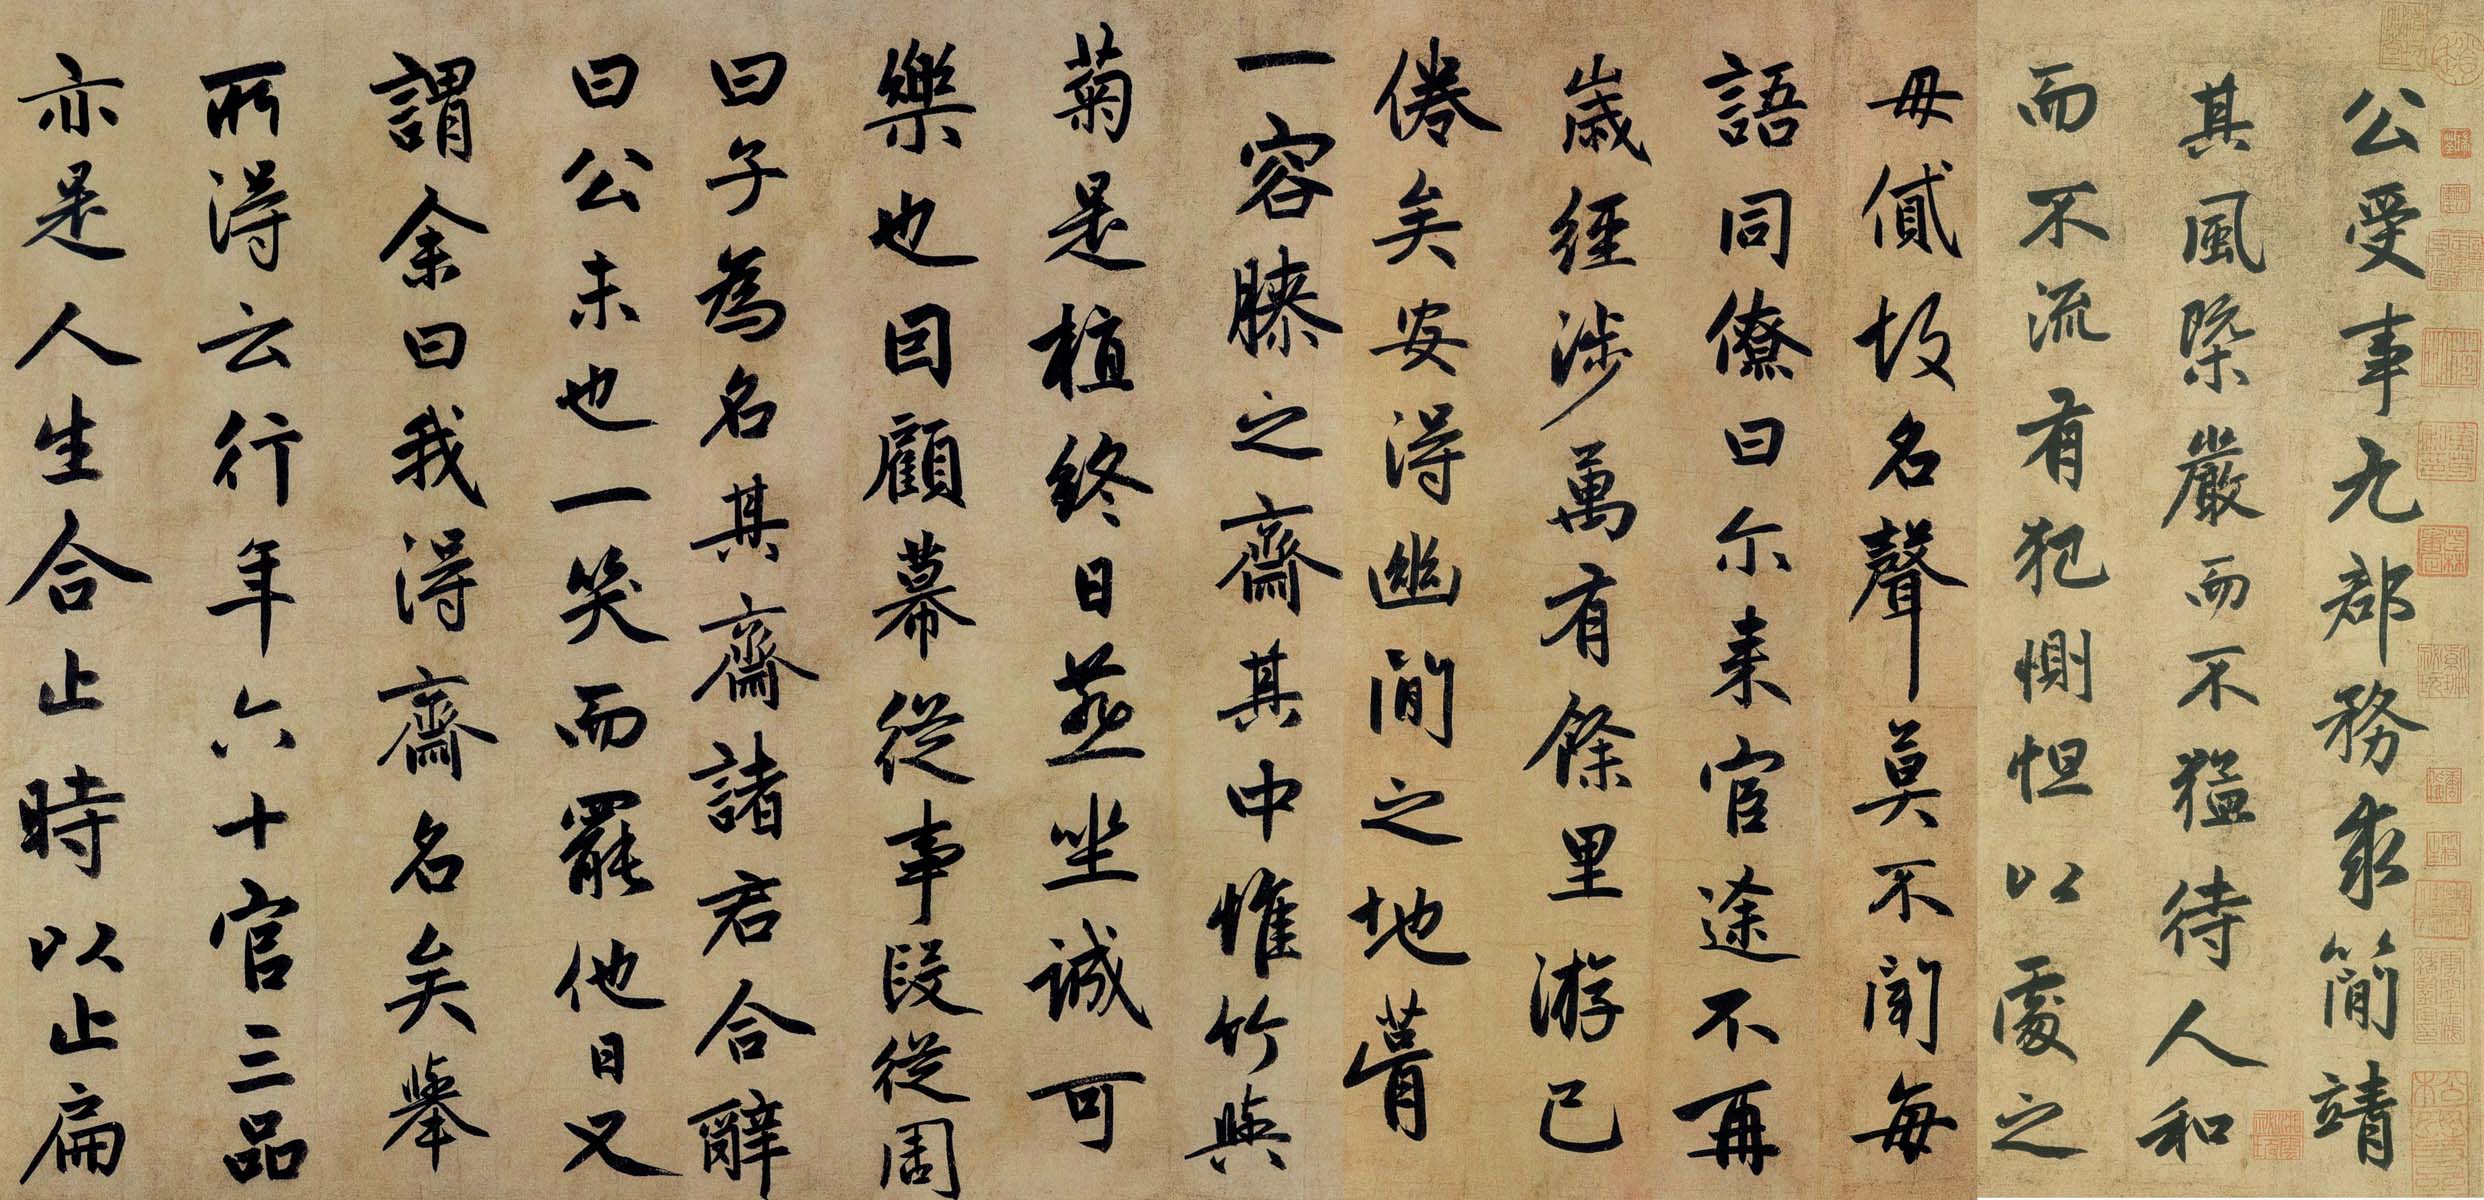 公受事九郡務求簡靖
其風槩嚴而不猛待人和
而不流有犯惻怛以處之
毋貳故名聲莫不聞每
語同僚曰尔来宦途不再
歲經涉萬有餘里游已
倦矣安得幽閒之地
一容膝之齋其中惟竹與
菊是植終日燕坐誠可
樂也因顧幕從事段從周
曰子為名其齋諸君合辭
曰公未也一笑而罷他日又
謂余曰我得齋名矣舉
所得云行年六十官三品
亦是人生合止時以止扁